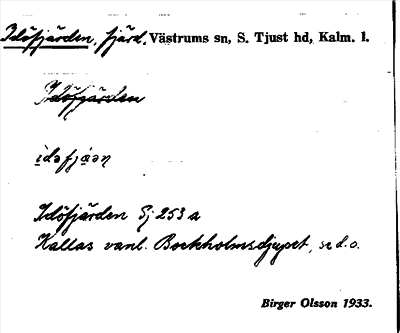 Idöfjärden, fjärd. Västrums sn, S. Tjust hd, Kalm. l.
Idöfjärden
ìdəfjáən
Idöfjärden Sj 253 a
Kallas vanl. Bockholmsdjupet, se d. o.
Birger Olsson 1933.